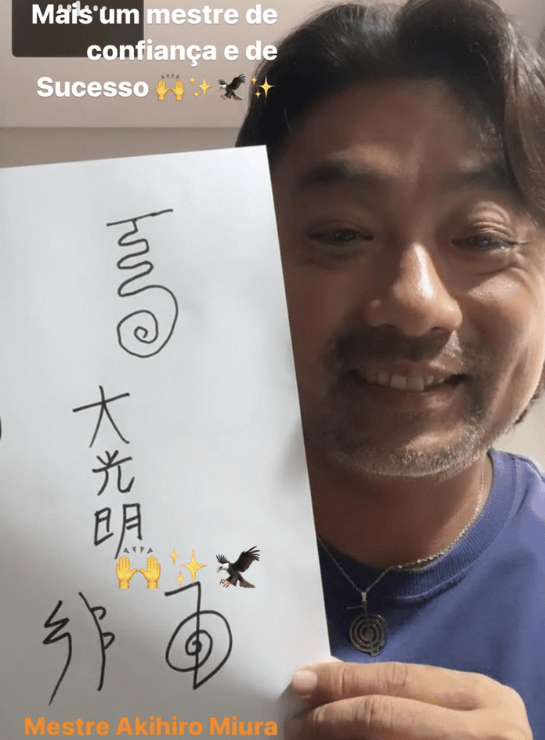 Mais um mestre de
confiança e de
Sucesso 🙌✨🦅✨
大
光
明
🙌✨🦅
Mestre Akihiro Miura